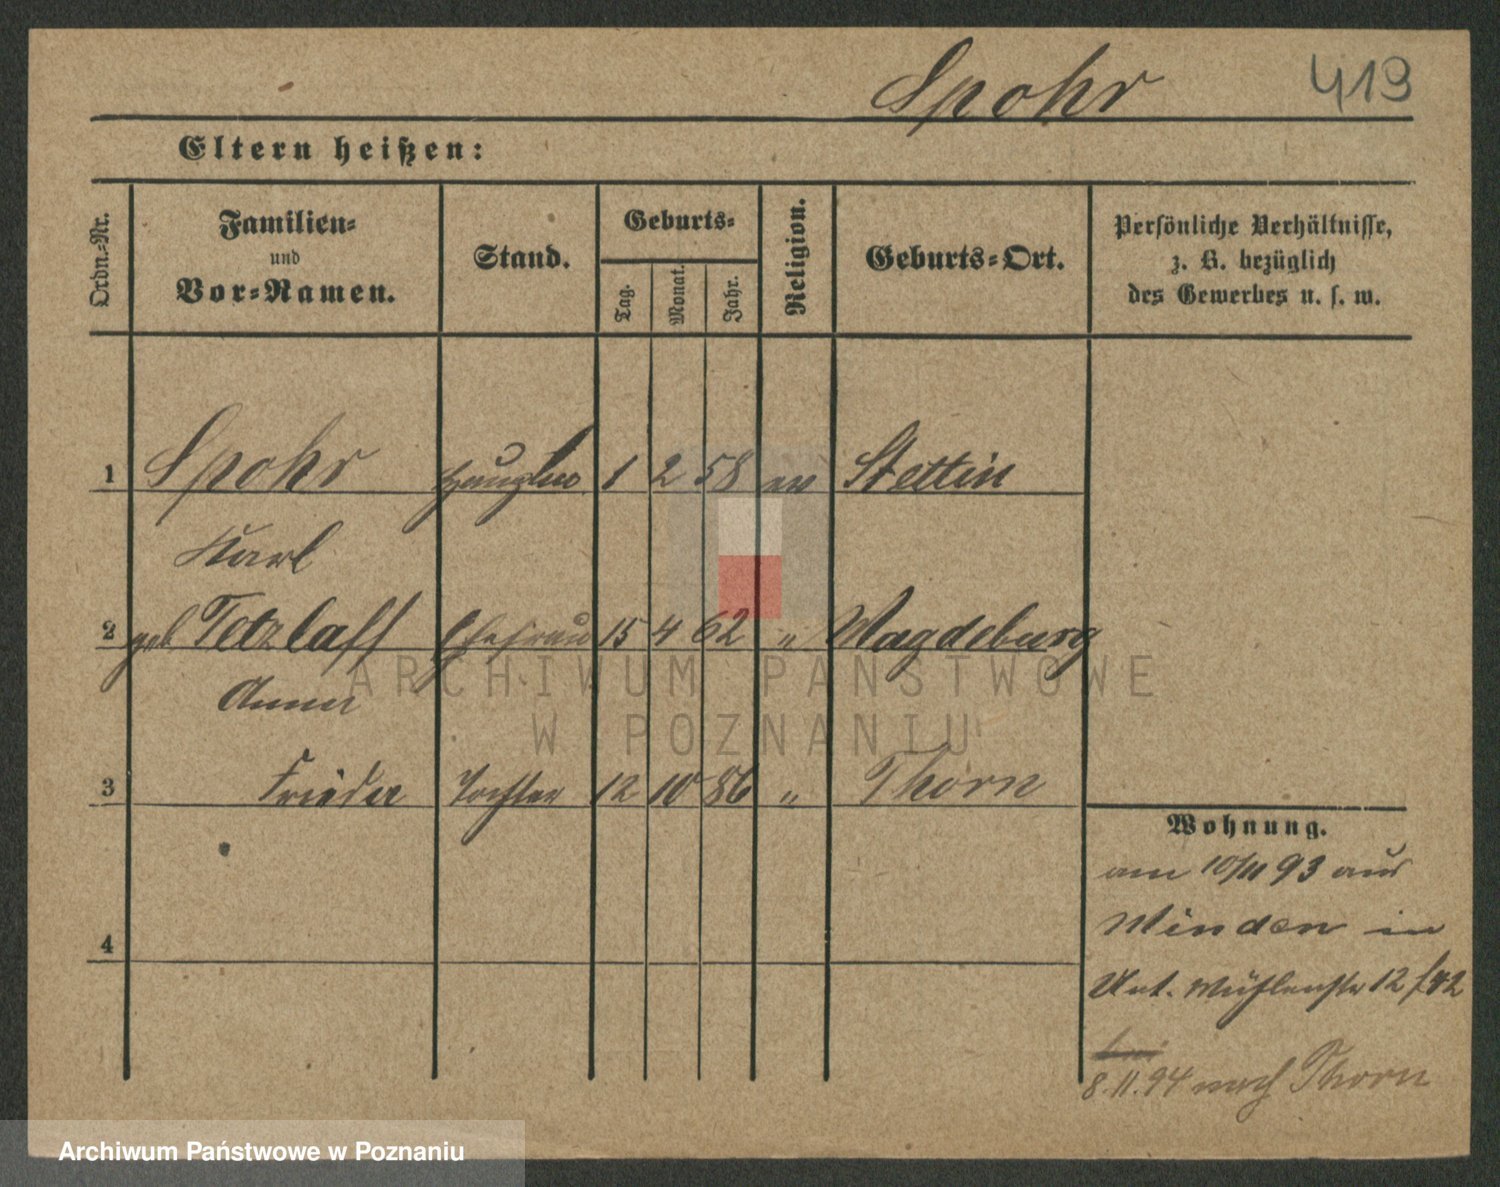 Spohr 419
Eltern heißen:
Ordn.-Nr.
Familien-
und
Vor-Namen.
Stand.
Geburts-
Tag.
Monat.
Jahr.
Religion.
Geburts-Ort.
Persönliche Verhältnisse,
z. B. bezüglich
des Gewerbes u. s. w.
1 Spohr 1 2 58 ev Stettin
Karl
2 geb Tetzlaff Ehefrau 15 4 62 " Magdeburg
Anna
3 Tochter 12 10 86 " Thorn
4
Wohnung.
am 10/11 93 aus
Minden in
Unt. Mühlenstr 12
8.11.94 nach Thorn
ARCHIWUM PAŃSTWOWE
W POZNANIU
Archiwum Państwowe w Poznaniu